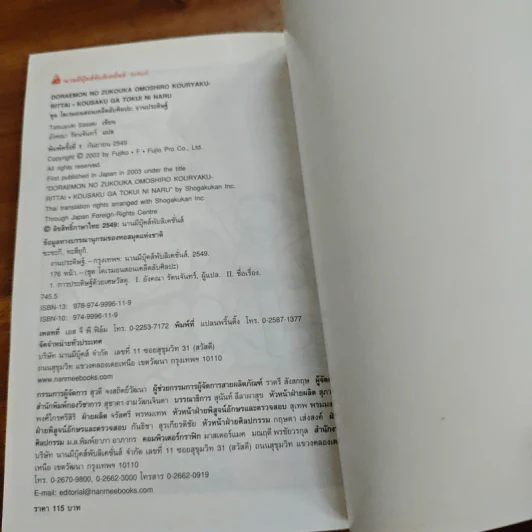 นานมีบุ๊คส์พับลิเคชั่นส์
DORAEMON NO ZUKOUKA OMOSHIRO KOURYAKU-
RITTAI • KOUSAKU GA TOKUI NI NARU
ชุด โดเรมอนสอนเคล็ดลับศิลปะ งานประดิษฐ์
Tatsuyuki Sasaki เขียน
อังคณา รัตนจันทร์ แปล
พิมพ์ครั้งที่ 1 กันยายน 2549
Copyright © 2003 by Fujiko • F • Fujio Pro Co., Ltd.
All rights reserved.
First published in Japan in 2003 under the title
"DORAEMON NO ZUKOUKA OMOSHIRO KOURYAKU-
RITTAI • KOUSAKU GA TOKUI NI NARU" by Shogakukan Inc.
Thai translation rights arranged with Shogakukan Inc.
Through Japan Foreign-Rights Centre
© ลิขสิทธิ์ภาษาไทย 2549: นานมีบุ๊คส์พับลิเคชั่นส์
ข้อมูลทางบรรณานุกรมของหอสมุดแห่งชาติ
ซะซะกิ, ทะสึยุกิ.
งานประดิษฐ์.--กรุงเทพฯ: นานมีบุ๊คส์พับลิเคชั่นส์, 2549.
176 หน้า.--(ชุด โดเรมอนสอนเคล็ดลับศิลปะ)
1. การประดิษฐ์ด้วยเศษวัสดุ. I. อังคณา รัตนจันทร์, ผู้แปล. II. ชื่อเรื่อง.
745.5
ISBN-13: 978-974-9996-11-9
ISBN-10: 974-9996-11-9
เพลทที่ เอส จี พี ฟิล์ม โทร. 0-2253-7172 พิมพ์ที่ แปลนพริ้นติ้ง โทร. 0-2587-1377
จัดจำหน่ายทั่วประเทศ
บริษัท นานมีบุ๊คส์ จำกัด เลขที่ 11 ซอยสุขุมวิท 31 (สวัสดี)
ถนนสุขุมวิท แขวงคลองเตยเหนือ เขตวัฒนา กรุงเทพฯ 10110
www.nanmeebooks.com
กรรมการผู้จัดการ สุวดี จงสถิตย์วัฒนา ผู้ช่วยกรรมการผู้จัดการสายผลิตภัณฑ์ ราตรี สังสกฤษ
สำนักพิมพ์กองวิชาการ สุชาดา งามวัฒนจินดา บรรณาธิการ สุนันท์ ลีลาพาสุข หัวหน้าฝ่ายผลิต
พงศ์ไกรศรีสิริ ฝ่ายผลิต จรัสศรี พรหมเทพ หัวหน้าฝ่ายพิสูจน์อักษรและตรวจสอบ สุเทพ
ฝ่ายพิสูจน์อักษรและตรวจสอบ กันธิชา สุรเกียรติชัย หัวหน้าฝ่ายศิลปกรรม กฤษดา เส่งสงค์
ศิลปกรรม ม.ล.พิมพ์อาภา อาภากร คอมพิวเตอร์กราฟิก มาสเตอร์แมค มณฤดี พรชัยวรกุล
บริษัท นานมีบุ๊คส์พับลิเคชั่นส์ จำกัด เลขที่ 11 ซอยสุขุมวิท 31 (สวัสดี) ถนนสุขุมวิท แขวงคลองเตย
เหนือ เขตวัฒนา กรุงเทพฯ 10110
โทร. 0-2670-9800, 0-2662-3000 โทรสาร 0-2662-0919
E-mail: editorial@nanmeebooks.com
ราคา 115 บาท